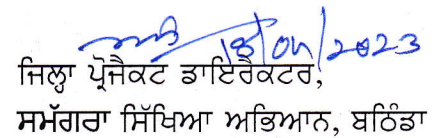 18/04/2023
ਜਿਲ੍ਹਾ ਪ੍ਰੋਜੈਕਟ ਡਾਇਰੈਕਟਰ,
ਸਮੱਗਰਾ ਸਿੱਖਿਆ ਅਭਿਆਨ, ਬਠਿੰਡਾ